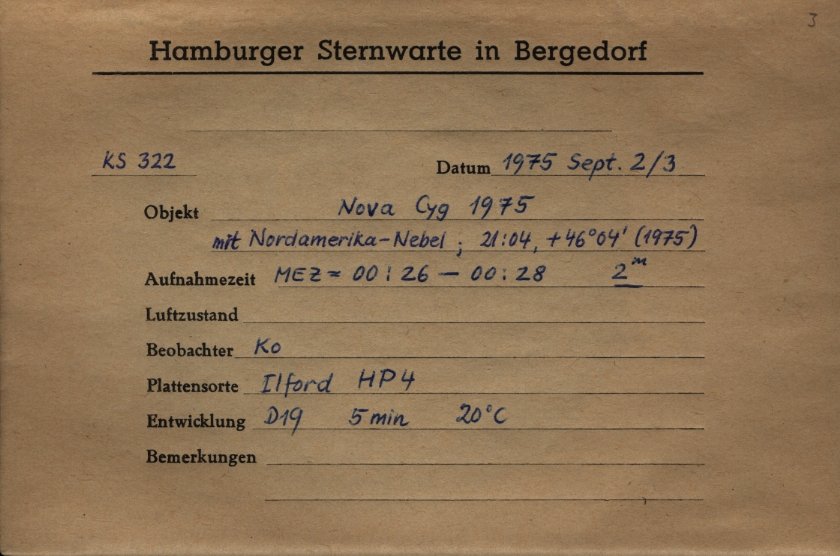 3
Hamburger Sternwarte in Bergedorf
KS 322 Datum 1975 Sept. 2/3
Objekt Nova Cyg 1975
mit Nordamerika-Nebel ; 21:04, +46°04' (1975)
Aufnahmezeit MEZ = 00:26 — 00:28 2ᵐ
Luftzustand
Beobachter Ko
Plattensorte Ilford HP4
Entwicklung D19 5 min 20°C
Bemerkungen